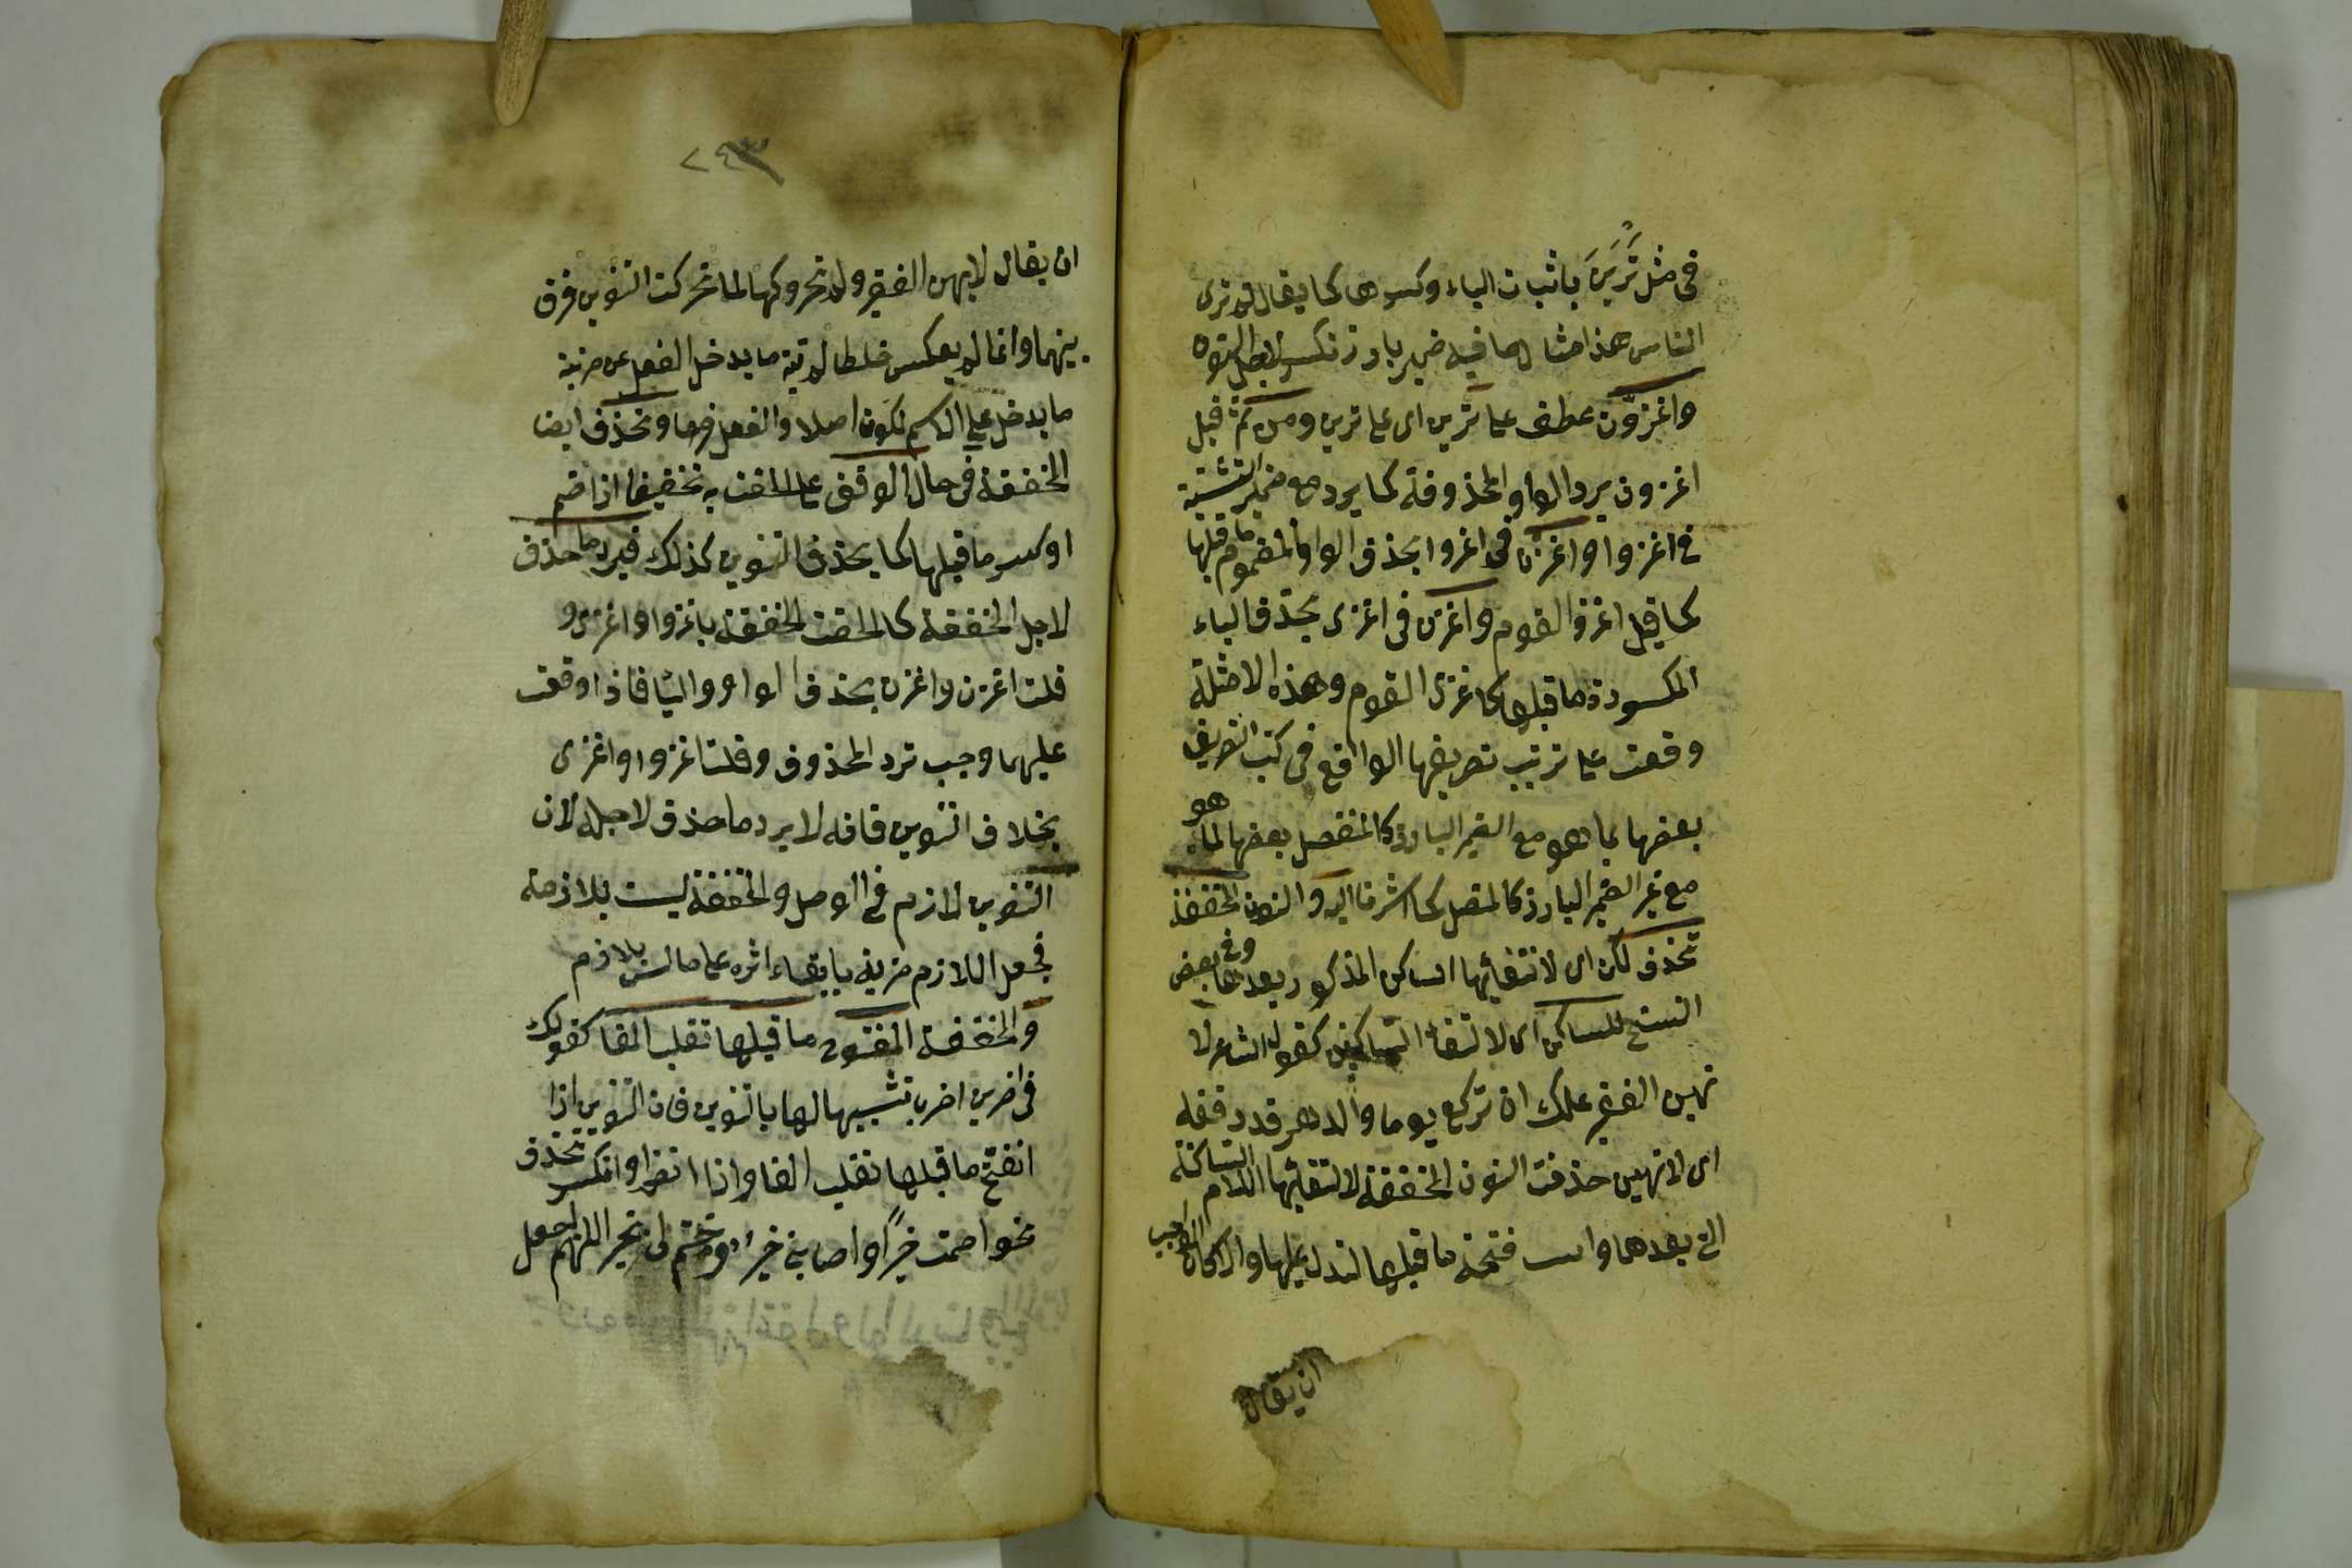 فى مثل تَرَيِنَّ باثبات الياء وكسرها كما يقال لم ترى
الناس هذا مثال لما فيه ضمير بارز تكسر لاجل النون
واغزوُنّ عطف على ترين اى على ترين ومن ثَمّ قيل
اغزون برد الواو المحذوفة كما يرد مع ضمير التثنية
فى اغزوا واغزن فى اغزوا بحذف الواو المضموم ما قبلها
كما قيل اغزوا القوم واغزن فى اغزى بحذف الياء
المكسورة ما قبلها كاغزى القوم وهذه الامثلة
وقعت على ترتيب تصريفها الواقع فى كتب التصريف
بعضها بما هو مع الضمير البارز كالمنفصل بعضها لما هو
مع غير الضمير البارز كالمتصل كما اشرنا اليه والنون المخففة
تحذف لكن اى لالتقائها الساكن المذكور بعدها وفى بعض
النسخ للساكن اى لالتقاء الساكنين كقول الشاعر لا
تهين الفقير علك ان تركع يوما والدهر قد رفعه
اى لا تهين حذفت النون المخففة لالتقائها اللام الساكنة
التى بعدها وابـ فتحة ما قبلها لتدل عليها والا كان الواجب
ان يقال
٢٤٣
ان يقال لا تهن الفقير ولم تحركها لما تحركت التنوين فرق
بينهما وانما لم يعكس حطا لمرتبة ما يدخل الفعل عن مرتبة
ما يدخل على الاسم لكون اصلا والفعل فرعا وتحذف ايضا
المخففة فى حال الوقف على ما لحقت به تخفيفا اذا ضم
او كسر ما قبلها كما يحذف التنوين كذلك فيرد ما حذف
لاجل المخففة كما لحقت المخففة باغزوا واغزى و
قلت اغزن واغزن بحذف الواو والياء فاذا وقفت
عليهما وجب ترد المحذوف وقلت اغزوا واغزى
بخلاف التنوين فانه لا يرد ما حذف لاجله لان
التنوين لازم فى الوصل والمخففة ليست بلازمة
فجعل اللازم مزية بابقاء اثره على ما ليس بلازم
والمخففة المفتوح ما قبلها تقلب الفا كقولك
فى اضربن اضربا تشبيها لها بالتنوين فان التنوين اذا
انفتح ما قبلها تقلب الفا واذا انضم او انكسر تحذف
نحو اصبت خيرًا واصابنى خير وختم لى بخير اللهم اجعل